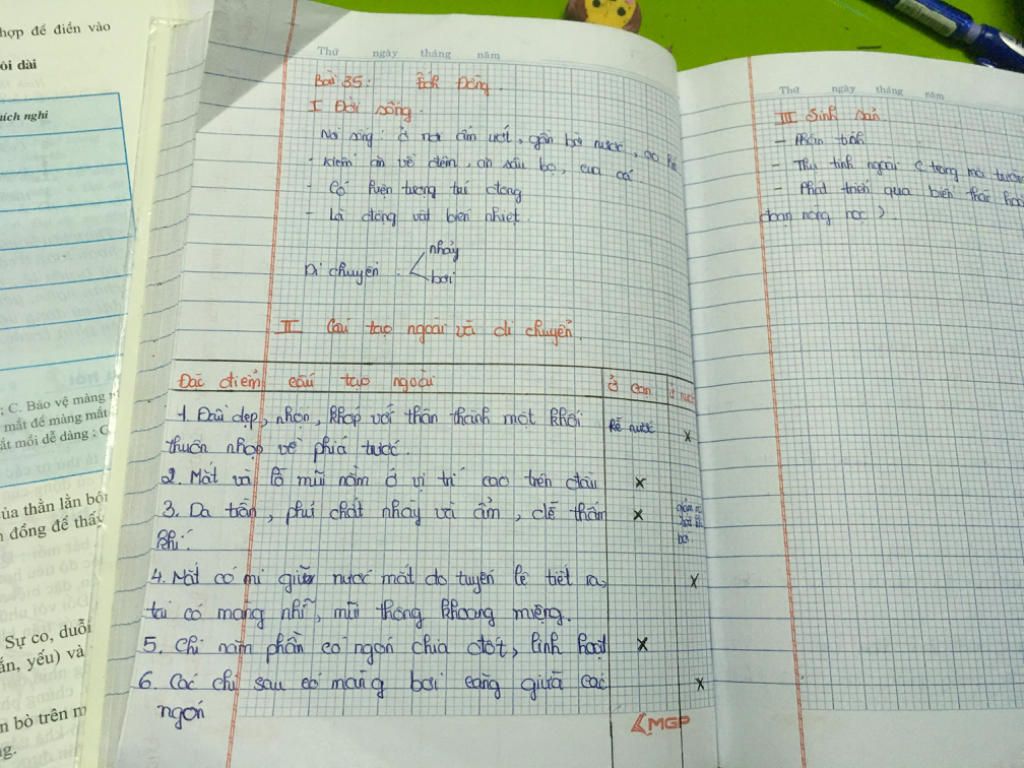 hợp để điền vào
ôi dài
hích nghi
; C. Bảo vệ màng
mắt để màng mắt
ắt mồi dễ dàng ; C
ủa thằn lằn bón
n đồng để thấy
Sự co, duỗi
ắn, yếu) và
n bò trên m
ng.
Thứ ngày tháng năm
Bài 35: Ếch Đồng.
I Đời sống.
Nơi sống: ở nơi ẩm ướt, gần bờ nước, ao
- Kiếm ăn về đêm, ăn sâu bọ, cua cá
- Có hiện tượng trú đông
- Là động vật biến nhiệt.
Di chuyển nhảy
bơi
II Cấu tạo ngoài và di chuyển.
Đặc điểm cấu tạo ngoài ở cạn ở nước
1. Đầu dẹp, nhọn, khớp với thân thành một khối rẽ nước x
thuôn nhọn về phía trước.
2. Mắt và lỗ mũi nằm ở vị trí cao trên đầu x
3. Da trần, phủ chất nhày và ẩm, dễ thấm x
khí. bơi
4. Mắt có mi giữ nước mắt do tuyến lệ tiết ra, x
tai có màng nhĩ, mũi thông khoang miệng.
5. Chi năm phần có ngón chia đốt, linh hoạt x
6. Các chi sau có màng bơi căng giữa các x
ngón
MGP
Thứ ngày tháng năm
III Sinh sản.
- Phân tính
- Thụ tinh ngoài (trong môi trường
- Phát triển qua biến thái hoàn
toàn nòng nọc)